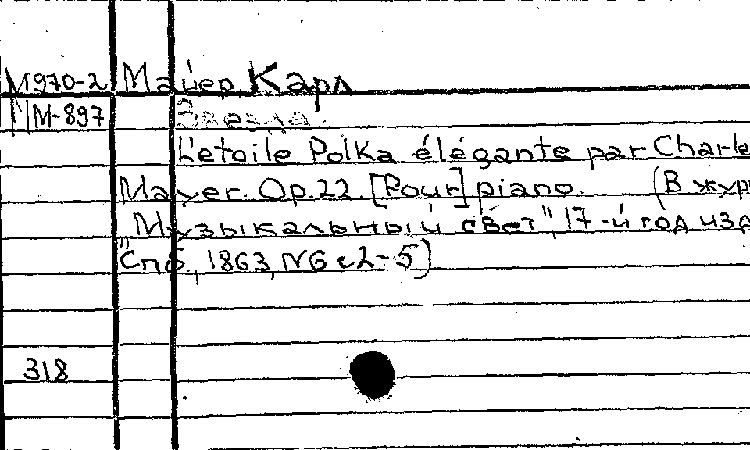 М970-2 Майер Карл
М-897 Звезда.
L'etoile Polka élégante par Charle
Mayer. Op. 22. [Pour] piano. (В журн
"Музыкальный свет", 17-й год изд
Спб., 1863, №6 с2-5)
318